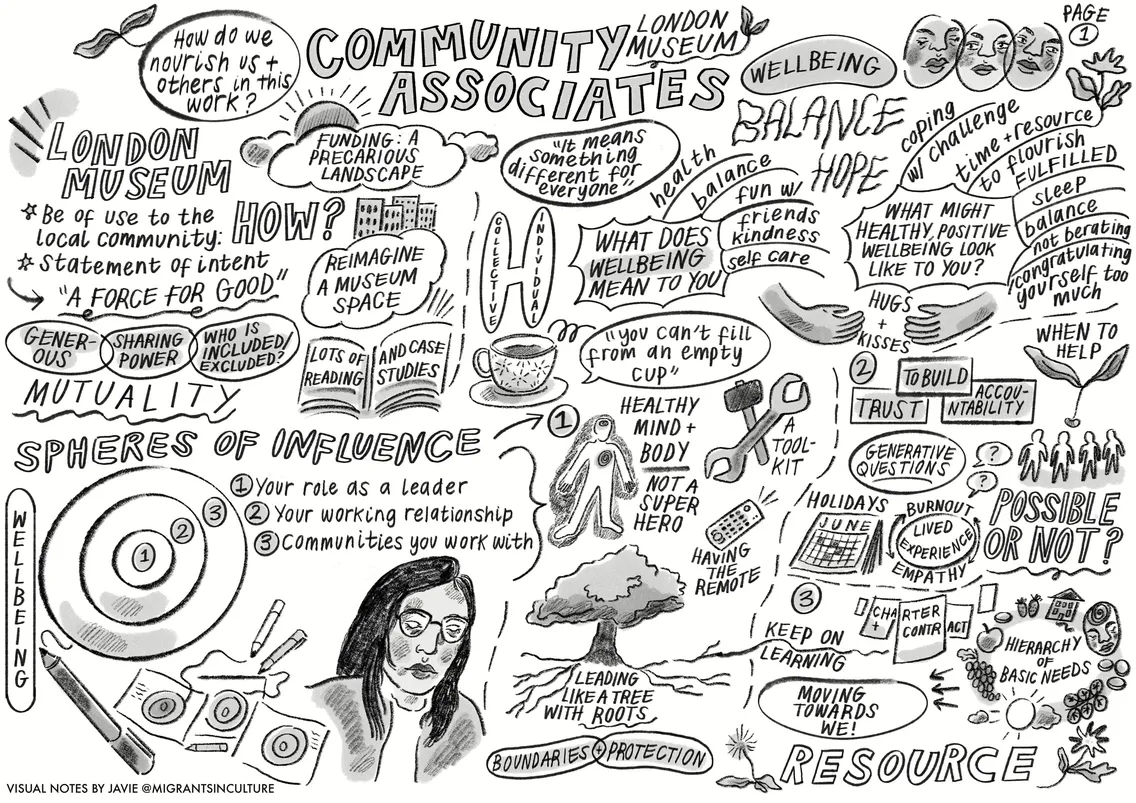 How do we
nourish us +
others in this
work?
COMMUNITY
ASSOCIATES
LONDON
MUSEUM
PAGE
1
WELLBEING
BALANCE
HOPE
LONDON
MUSEUM
Be of use to the
local community:
Statement of intent
"A FORCE FOR GOOD"
HOW?
FUNDING: A
PRECARIOUS
LANDSCAPE
REIMAGINE
A MUSEUM
SPACE
GENER-
OUS
SHARING
POWER
WHO IS
INCLUDED/
EXCLUDED?
MUTUALITY
LOTS OF
READING
AND CASE
STUDIES
"It means
something
different for
everyone"
COLLECTIVE
INDIVIDUAL
WHAT DOES
WELLBEING
MEAN TO YOU
health
balance
fun w/
friends
kindness
self care
WHAT MIGHT
HEALTHY, POSITIVE
WELLBEING LOOK
LIKE TO YOU?
coping
w/ challenge
time + resource
to flourish
FULFILLED
sleep
balance
not berating
congratulating
yourself too
much
HUGS
+
KISSES
"you can't fill
from an empty
cup"
SPHERES OF INFLUENCE
WELLBEING
1
2
3
1 Your role as a leader
2 Your working relationship
3 Communities you work with
1
HEALTHY
MIND +
BODY
NOT A
SUPER
HERO
A
TOOL-
KIT
HAVING
THE
REMOTE
LEADING
LIKE A TREE
WITH ROOTS
BOUNDARIES + PROTECTION
2
TO BUILD
TRUST
ACCOU-
NTABILITY
WHEN TO
HELP
GENERATIVE
QUESTIONS
?
?
HOLIDAYS
JUNE
BURNOUT
LIVED
EXPERIENCE
EMPATHY
POSSIBLE
OR NOT?
3
CHA
+
RTER
CONTR
ACT
KEEP ON
LEARNING
MOVING
TOWARDS
WE!
HIERARCHY
OF
BASIC NEEDS
RESOURCE
VISUAL NOTES BY JAVIE @MIGRANTSINCULTURE